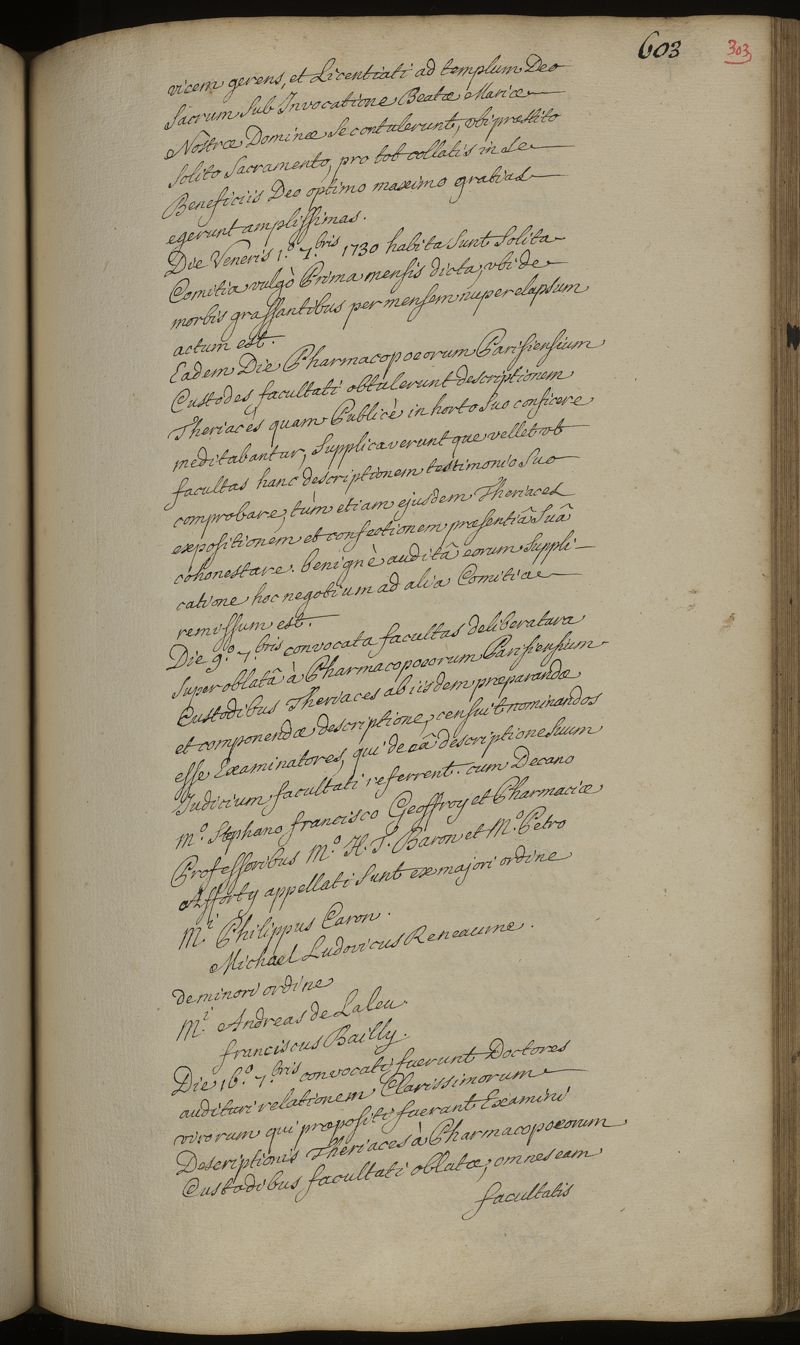 603
303
vicem gerens, et Licentiati ad templum Deo
Sacrum Sub Invocatione Beatæ Mariæ
Nostræ Dominæ Se contulerunt, vbi præstito
Solito Sacramento, pro tot collatis in Se
Beneficiis Deo optimo maximo gratias
egerunt amplissimas.
Die Veneris 1.º 7.bris 1730 habita Sunt Solita
Comitia vulgò Prima mensis dicta, vbi de
morbis grassantibus per mensem nuper elapsum
actum est.
Eadem Die Pharmacopoeorum Parisiensium
Custodes, facultati obtulerunt descriptionem
Theriaces quam Publicè in horto Suo conficere
meditabantur, Supplicaverunt que vellet vt
facultas hanc descriptionem testimonio Suo
comprobare, tùm etiam ejusdem Theriaces
expositionem et confectionem præsentiâ Suâ
cohonestare. benignè auditâ eorum Suppli-
catione hoc negotium ad alia Comitia
remissum est.
Die 9.º 7.bris convocata facultas deliberatura
Super oblatâ à Pharmacopoeorum Parisiensium
Custodibus Theriaces ab iisdem præparandæ
et componendæ descriptione, censuit nominandos
esse Examinatores, qui de eâ descriptione Suum
Iudicium facultati referrent. cum Decano
M.º Stephano francisco Geoffroy et Pharmaciæ
Professoribus M.º H. T. Baron et M.º Petro
Afforty appellati Sunt ex majori ordine
M.i Philippus Caron.
Michael Ludovicus Reneaume.
De minori ordine
M.i Andreas de Laleu.
franciscus Bailly.
Die 16.º 7.bris convocati fuerunt Doctores
audituri relationem Clarissimorum
virorum qui præpositi fuerant Examini
Descriptionis Theriaces à Pharmacopoeorum
Custodibus facultati oblatæ; omnes eam
facultatis